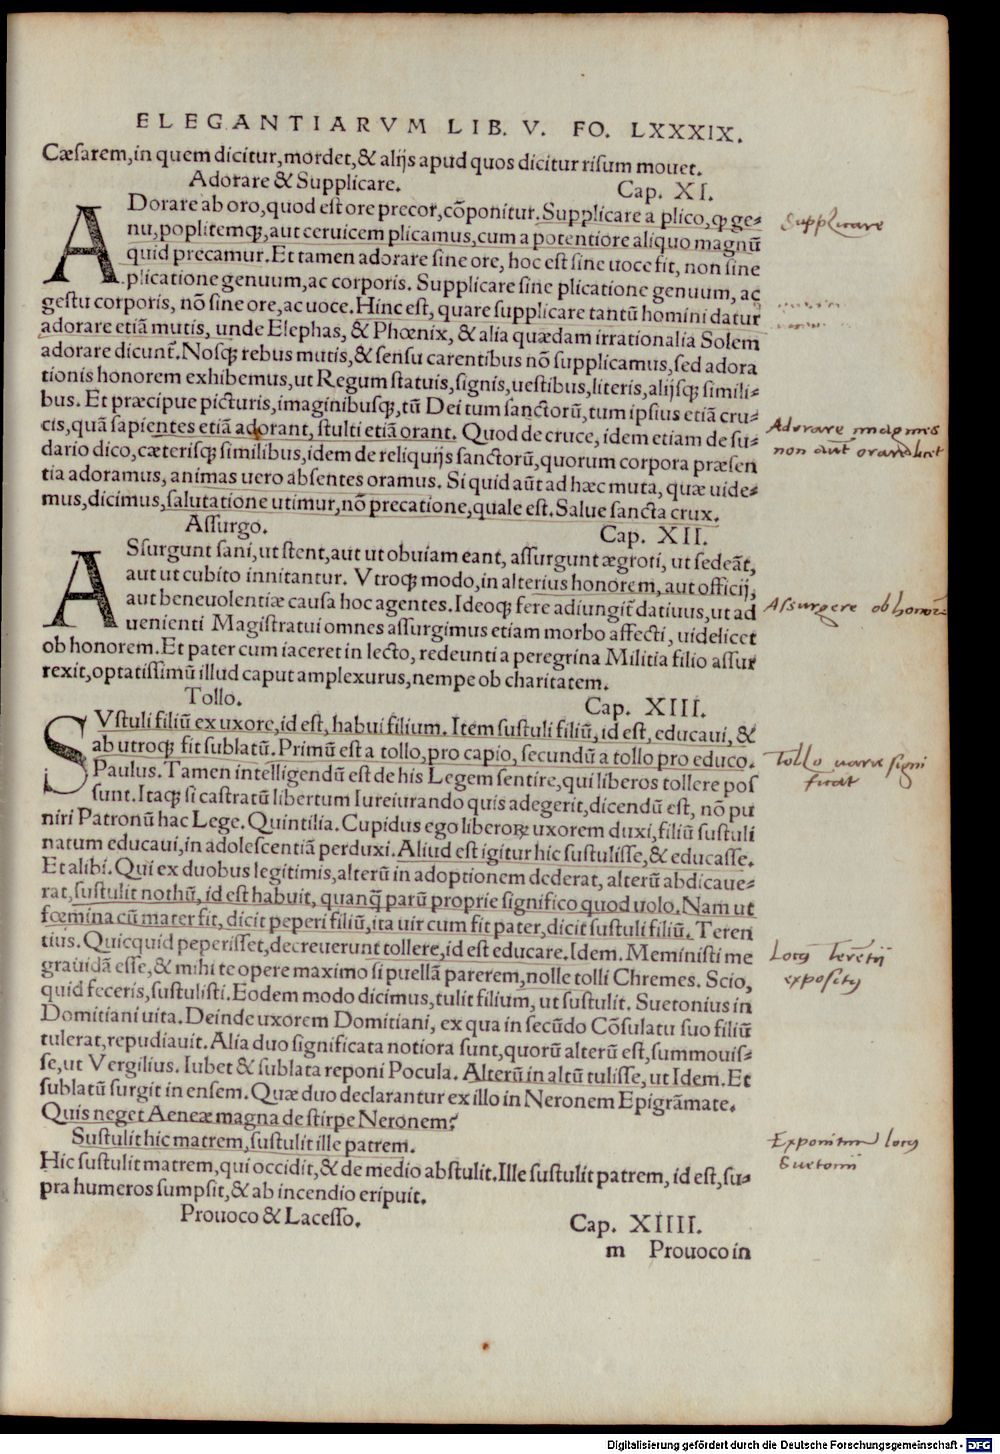 ELEGANTIARVM LIB. V. FO. LXXXIX.
Cæsarem,in quem dicitur,mordet,& alijs apud quos dicitur risum mouet.
Adorare & Supplicare. Cap. XI.
ADorare ab oro,quod est ore precor,cōponitur.Supplicare a plico,ꝙ ge-
nu,poplitemqꝫ,aut ceruicem plicamus,cum a potentiore aliquo magnū
quid precamur.Et tamen adorare sine ore, hoc est sine uoce fit, non sine
plicatione genuum,ac corporis. Supplicare sine plicatione genuum, ac
gestu corporis, nō sine ore,ac uoce.Hinc est, quare supplicare tantū homini datur
adorare etiā mutis, unde Elephas, & Phœnix, & alia quædam irrationalia Solem
adorare dicunt̄.Nosqꝫ rebus mutis,& sensu carentibus nō supplicamus,sed adora
tionis honorem exhibemus,ut Regum statuis,signis,uestibus,literis,alijsqꝫ simili-
bus. Et præcipue picturis,imaginibusqꝫ,tū Dei tum sanctorū,tum ipsius etiā cru-
cis,quā sapientes etiā adorant, stulti etiā orant. Quod de cruce, idem etiam de su-
dario dico,cæterisqꝫ similibus,idem de reliquijs sanctorū,quorum corpora præsen
tia adoramus, animas uero absentes oramus. Si quid aūt ad hæc muta, quæ uide-
mus,dicimus,salutatione utimur,nō precatione,quale est.Salue sancta crux.
Assurgo. Cap. XII.
ASsurgunt sani,ut stent,aut ut obuiam eant, assurgunt ægroti, ut sedeāt,
aut ut cubito innitantur. Vtroqꝫ modo,in alterius honorem,aut officij,
aut beneuolentiæ causa hoc agentes.Ideoqꝫ fere adiungit̄ datiuus,ut ad
uenienti Magistratui omnes assurgimus etiam morbo affecti, uidelicet
ob honorem.Et pater cum iaceret in lecto, redeunti a peregrina Militia filio assur
rexit,optatissimū illud caput amplexurus,nempe ob charitatem.
Tollo. Cap. XIII.
SVstuli filiū ex uxore,id est, habui filium. Item sustuli filiū, id est, educaui, &
ab utroqꝫ fit sublatū.Primū est a tollo,pro capio, secundū a tollo pro educo.
Paulus.Tamen intelligendū est de his Legem sentire,qui liberos tollere pos
sunt.Itaqꝫ si castratū libertum Iureiurando quis adegerit,dicendū est, nō pu
niri Patronū hac Lege.Quintilia.Cupidus ego liberoꝝ uxorem duxi,filiū sustuli
natum educaui,in adolescentiā perduxi.Aliud est igitur hic sustulisse,& educasse.
Et alibi.Qui ex duobus legitimis,alterū in adoptionem dederat, alterū abdicaue-
rat,sustulit nothū, id est habuit, quanq̄ parū proprie significo quod uolo.Nam ut
fœmina cū mater fit, dicit peperi filiū,ita uir cum fit pater,dicit sustuli filiū. Teren
tius.Quicquid peperisset,decreuerunt tollere,id est educare.Idem. Meministi me
grauidā esse,& mihi te opere maximo si puellā parerem,nolle tolli Chremes. Scio,
quid feceris,sustulisti.Eodem modo dicimus,tulit filium, ut sustulit. Suetonius in
Domitiani uita.Deinde uxorem Domitiani, ex qua in secūdo Cōsulatu suo filiū
tulerat,repudiauit.Alia duo significata notiora sunt,quorū alterū est,summouis-
se,ut Vergilius. Iubet & sublata reponi Pocula. Alterū in altū tulisse, ut Idem. Et
sublatū surgit in ensem.Quæ duo declarantur ex illo in Neronem Epigrāmate.
Quis neget Aeneæ magna de stirpe Neronem?
Sustulit hic matrem,sustulit ille patrem.
Hic sustulit matrem,qui occidit,& de medio abstulit.Ille sustulit patrem, id est,su-
pra humeros sumpsit,& ab incendio eripuit.
Prouoco & Lacesso. Cap. XIIII.
m Prouoco in
Supplicare
Adorare imagines
non aūt orare licet
Assurgere ob honorē
Tollo uarie signi
ficat
Locꝰ Terētij
expositꝰ
Exponitur locꝰ
Suetonij
Digitalisierung gefördert durch die Deutsche Forschungsgemeinschaft - DFG